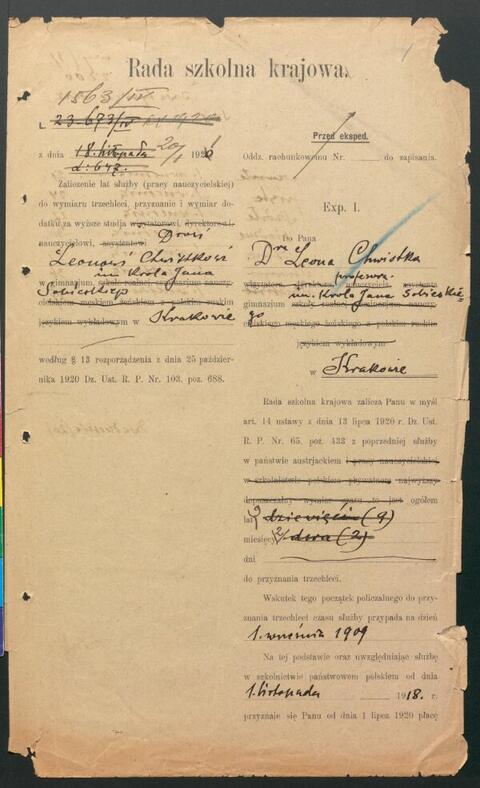 Rada szkolna krajowa.
1563/IV
L 23.673/IV
z dnia 18. listopada 20/1 1921
L: 647.
Zaliczenie lat służby (pracy nauczycielskiej)
do wymiaru trzechleci, przyznanie i wymiar do-
datku za wyższe studja wizytatorowi, dyrektorowi,
nauczycielowi, asystentowi Drowi
Leonowi Chwistkowi
im. Króla Jana
Sobieskiego
w gimnazjum, szkole realnej seminarjum nauczy-
cielskiem męskiem żeńskiem z polskim ruskim
językiem wykładowym w Krakowie
według § 13 rozporządzenia z dnia 25 paździer-
nika 1920 Dz. Ust. R. P. Nr. 103. poz. 688.
Przed eksped.
Oddz. rachunkowemu Nr. do zapisania.
Exp. I.
Do Pana
Dra Leona Chwistka
profesora
nauczyciela, asystenta
im. Króla Jana Sobieskie-
gimnazjum szkoły realnej seminarjum nauczy-
go
cielskiego męskiego żeńskiego z polskim ruskim
językiem wykładowym
w Krakowie
Rada szkolna krajowa zalicza Panu w myśl
art. 14 ustawy z dnia 13 lipca 1920 r. Dz. Ust.
R. P. Nr. 65. poz. 433 z poprzedniej służby
w państwie austrjackiem i pracy nauczycielskiej
w szkolnictwie polskiem prywatnem najwyższy
dopuszczalny wymiar czasu to jest ogółem
lat 9 dziewięć (9)
miesięcy 2 dwa (2)
dni
do przyznania trzechleci.
Wskutek tego początek policzalnego do przy-
znania trzechleci czasu służby przypada na dzień
1. września 1909
Na tej podstawie oraz uwzględniając służbę
w szkolnictwie państwowem polskiem od dnia
1. listopada 1918. r.
przyznaje się Panu od dnia 1 lipca 1920 płacę